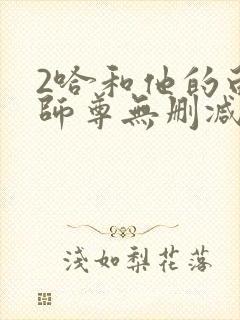 2哈和他的
師尊無删减
淺如梨花落